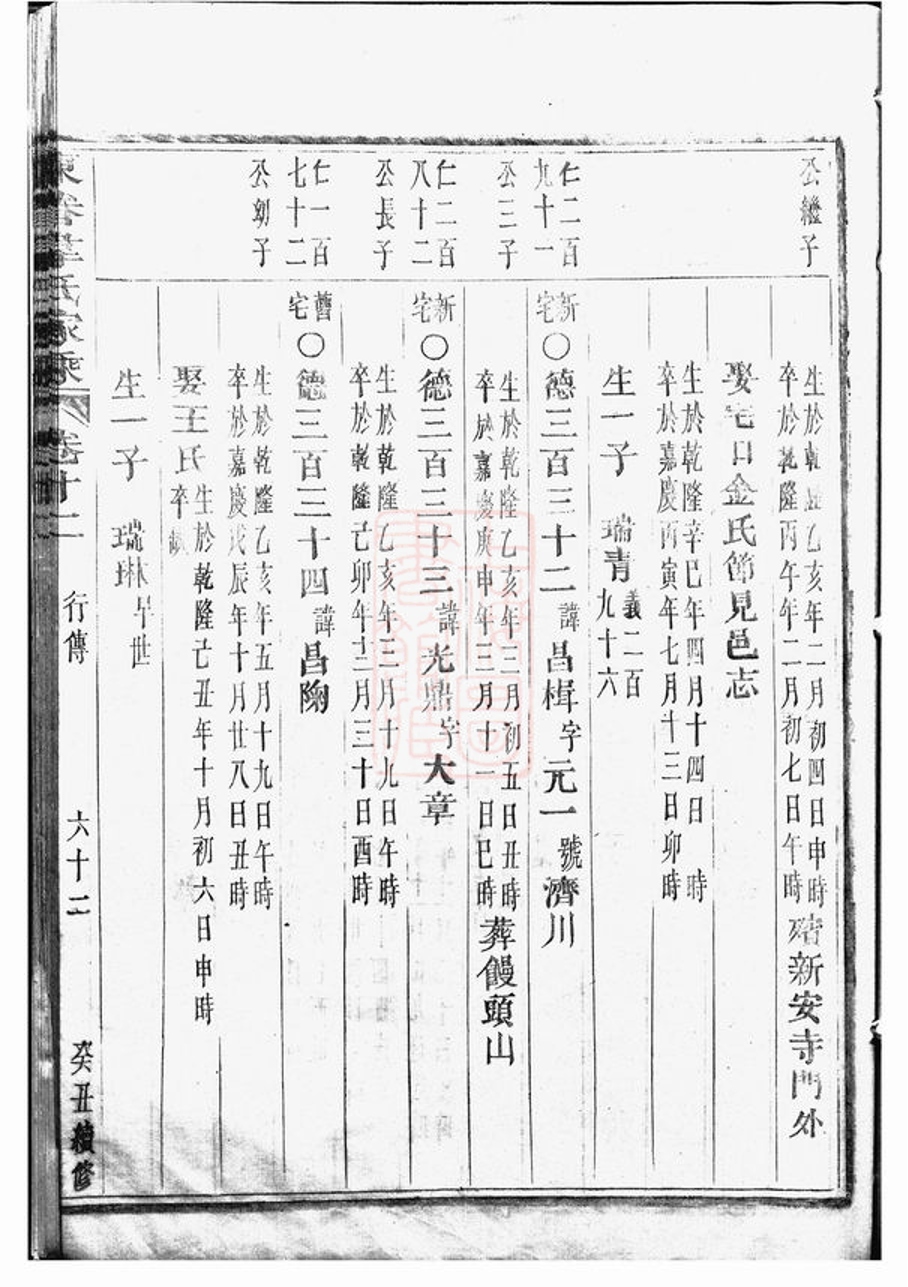 公繼子
生於乾隆乙亥年二月初四日申時
卒於乾隆丙午年二月初七日午時
新安寺門外
娶宅口金氏節見邑志
生於乾隆辛巳年四月十四日 時
卒於嘉慶丙寅年七月廿三日卯時
生一子 瑞青 義二百九十六
仁二百九十一公三子
新宅〇德三百三十二諱昌楫字元一號濟川
生於乾隆乙亥年三月初五日丑時
卒於嘉慶庚申年三月十一日巳時
葬饅頭山
仁二百八十二公長子
新宅〇德三百三十三諱光鼎字大章
生於乾隆乙亥年三月十九日午時
卒於乾隆己卯年十二月三十日酉時
仁一百七十二公幼子
舊宅〇德三百三十四諱昌陶
生於乾隆乙亥年五月十九日午時
卒於嘉慶戊辰年十月廿八日丑時
娶王氏 生於乾隆己丑年十月初六日申時
卒缺
生一子 瑞琳 早世
氏家乘 卷十二 行傳 六十二 癸丑續修